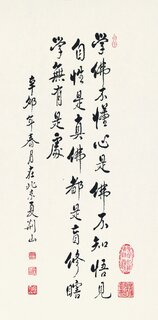 学佛不懂心是佛不知悟见
自性是真佛都是盲修瞎
学無有是處
辛卯年春月在北京夏荆山